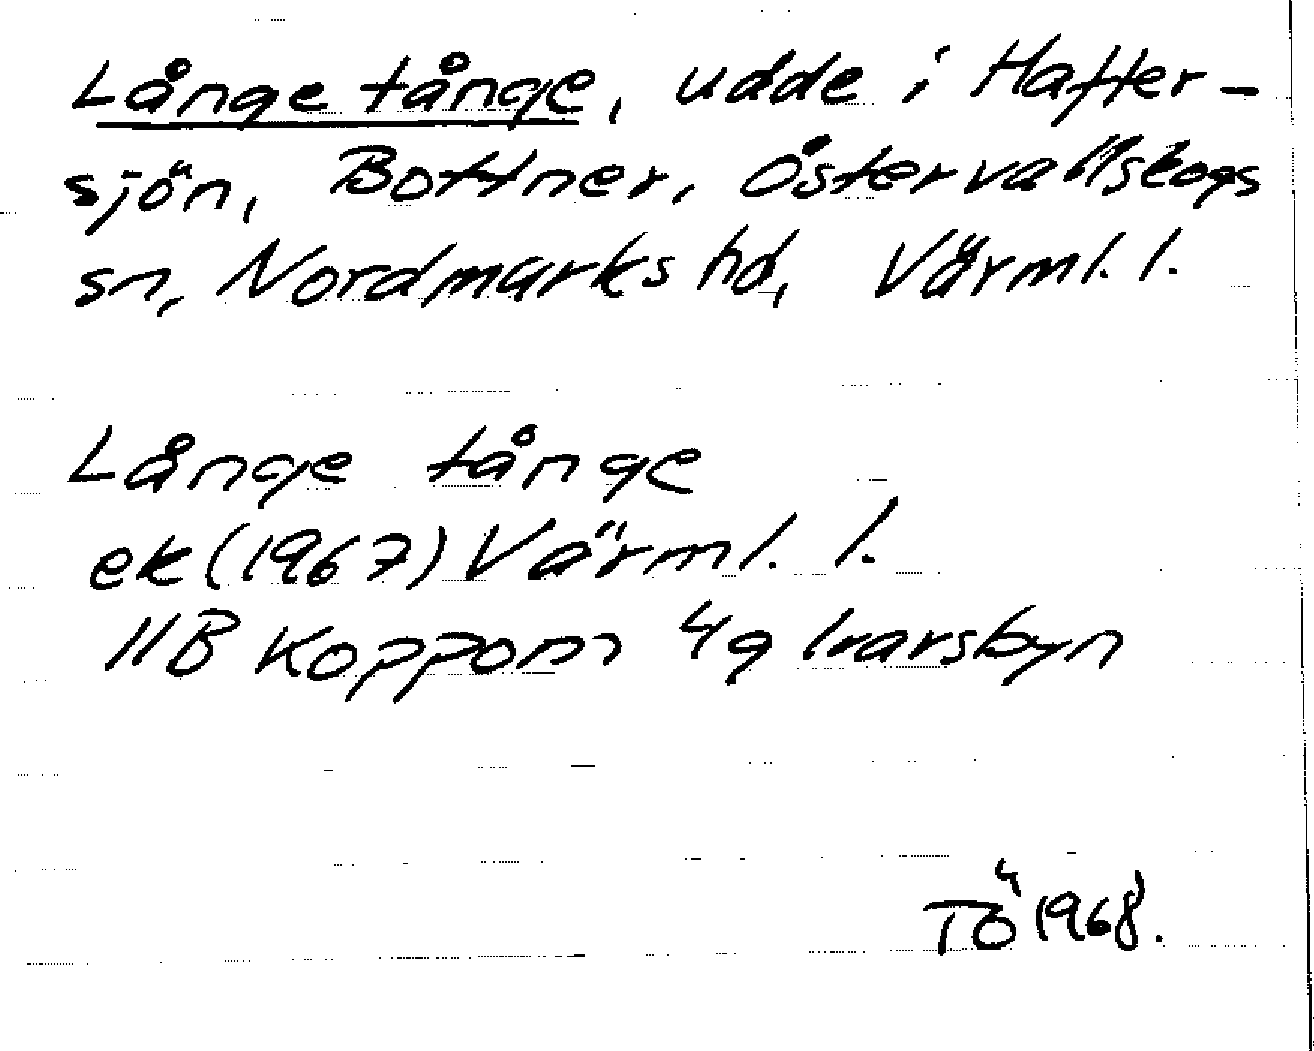 Långe tånge, udde i Hafter-
sjön, Bottner, Östervallskogs
sn, Nordmarks hd, Värml. l.
Långe tånge
ek (1967) Värml. l.
11B Koppom 4g Ivarsbyn
TÖ 1968.